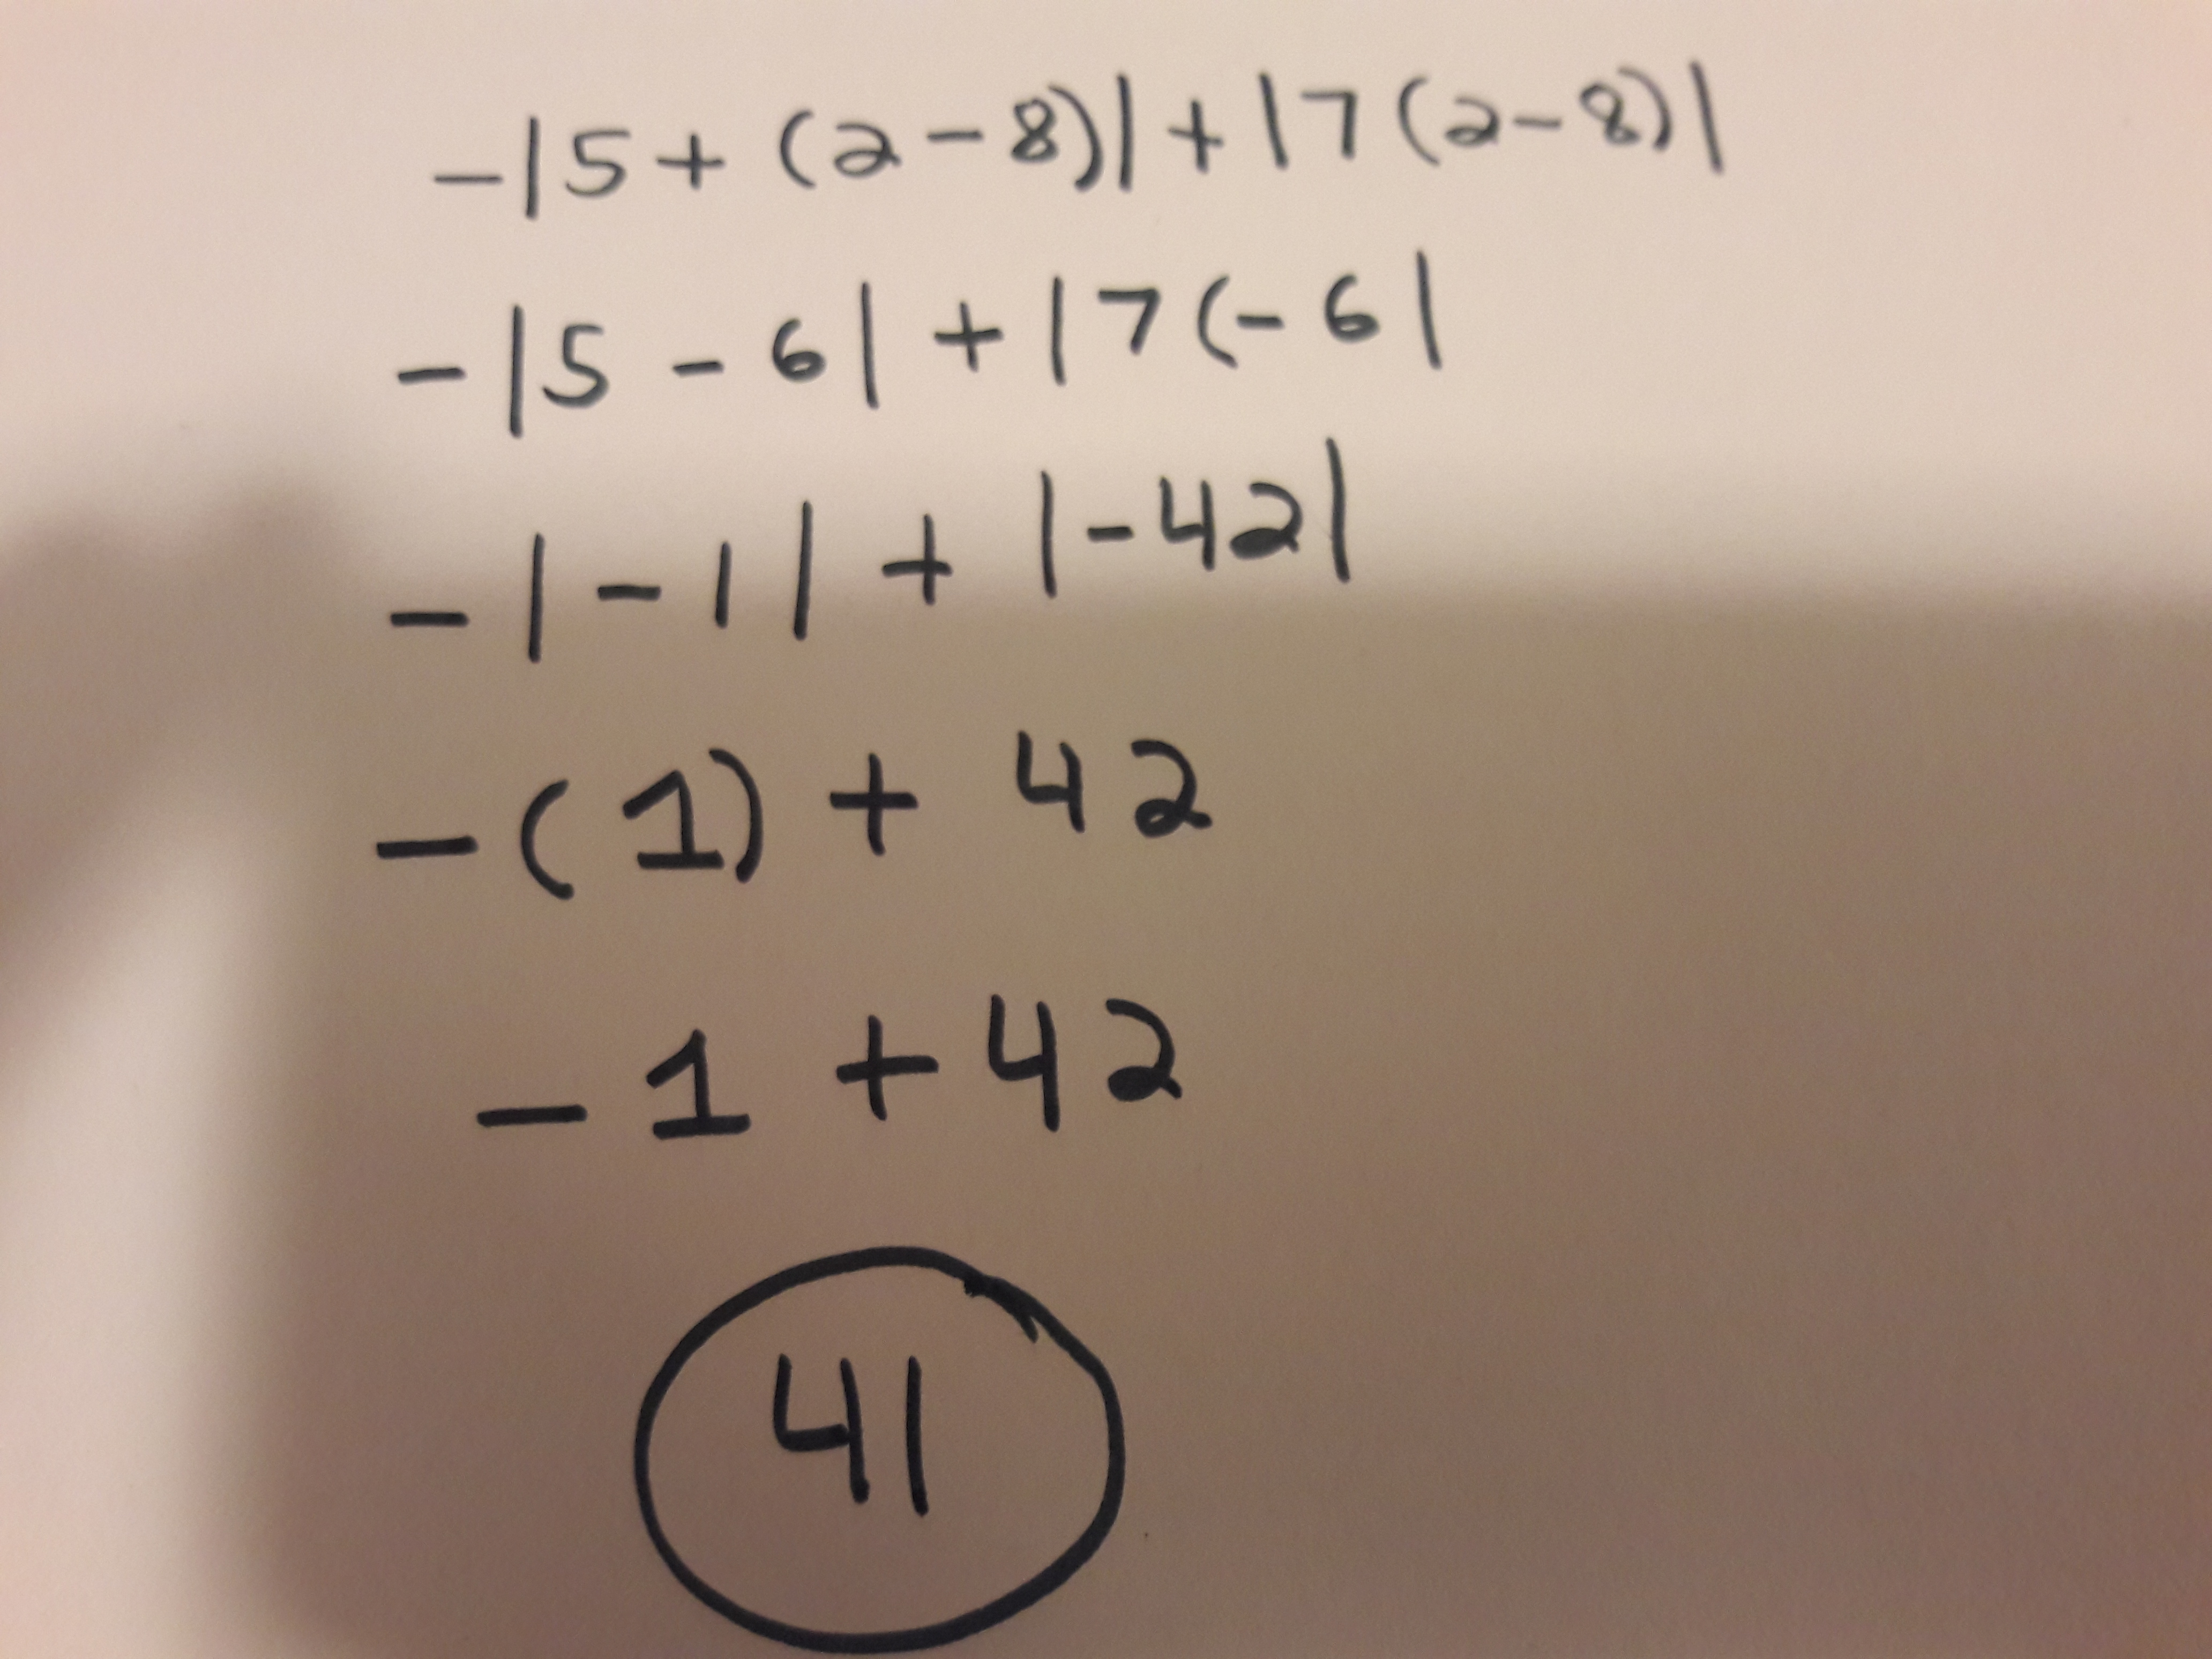 -|5+(2-8)|+|7(2-8)|
-|5-6|+|7(-6|
-|-1|+|-42|
-(1)+42
-1+42
41